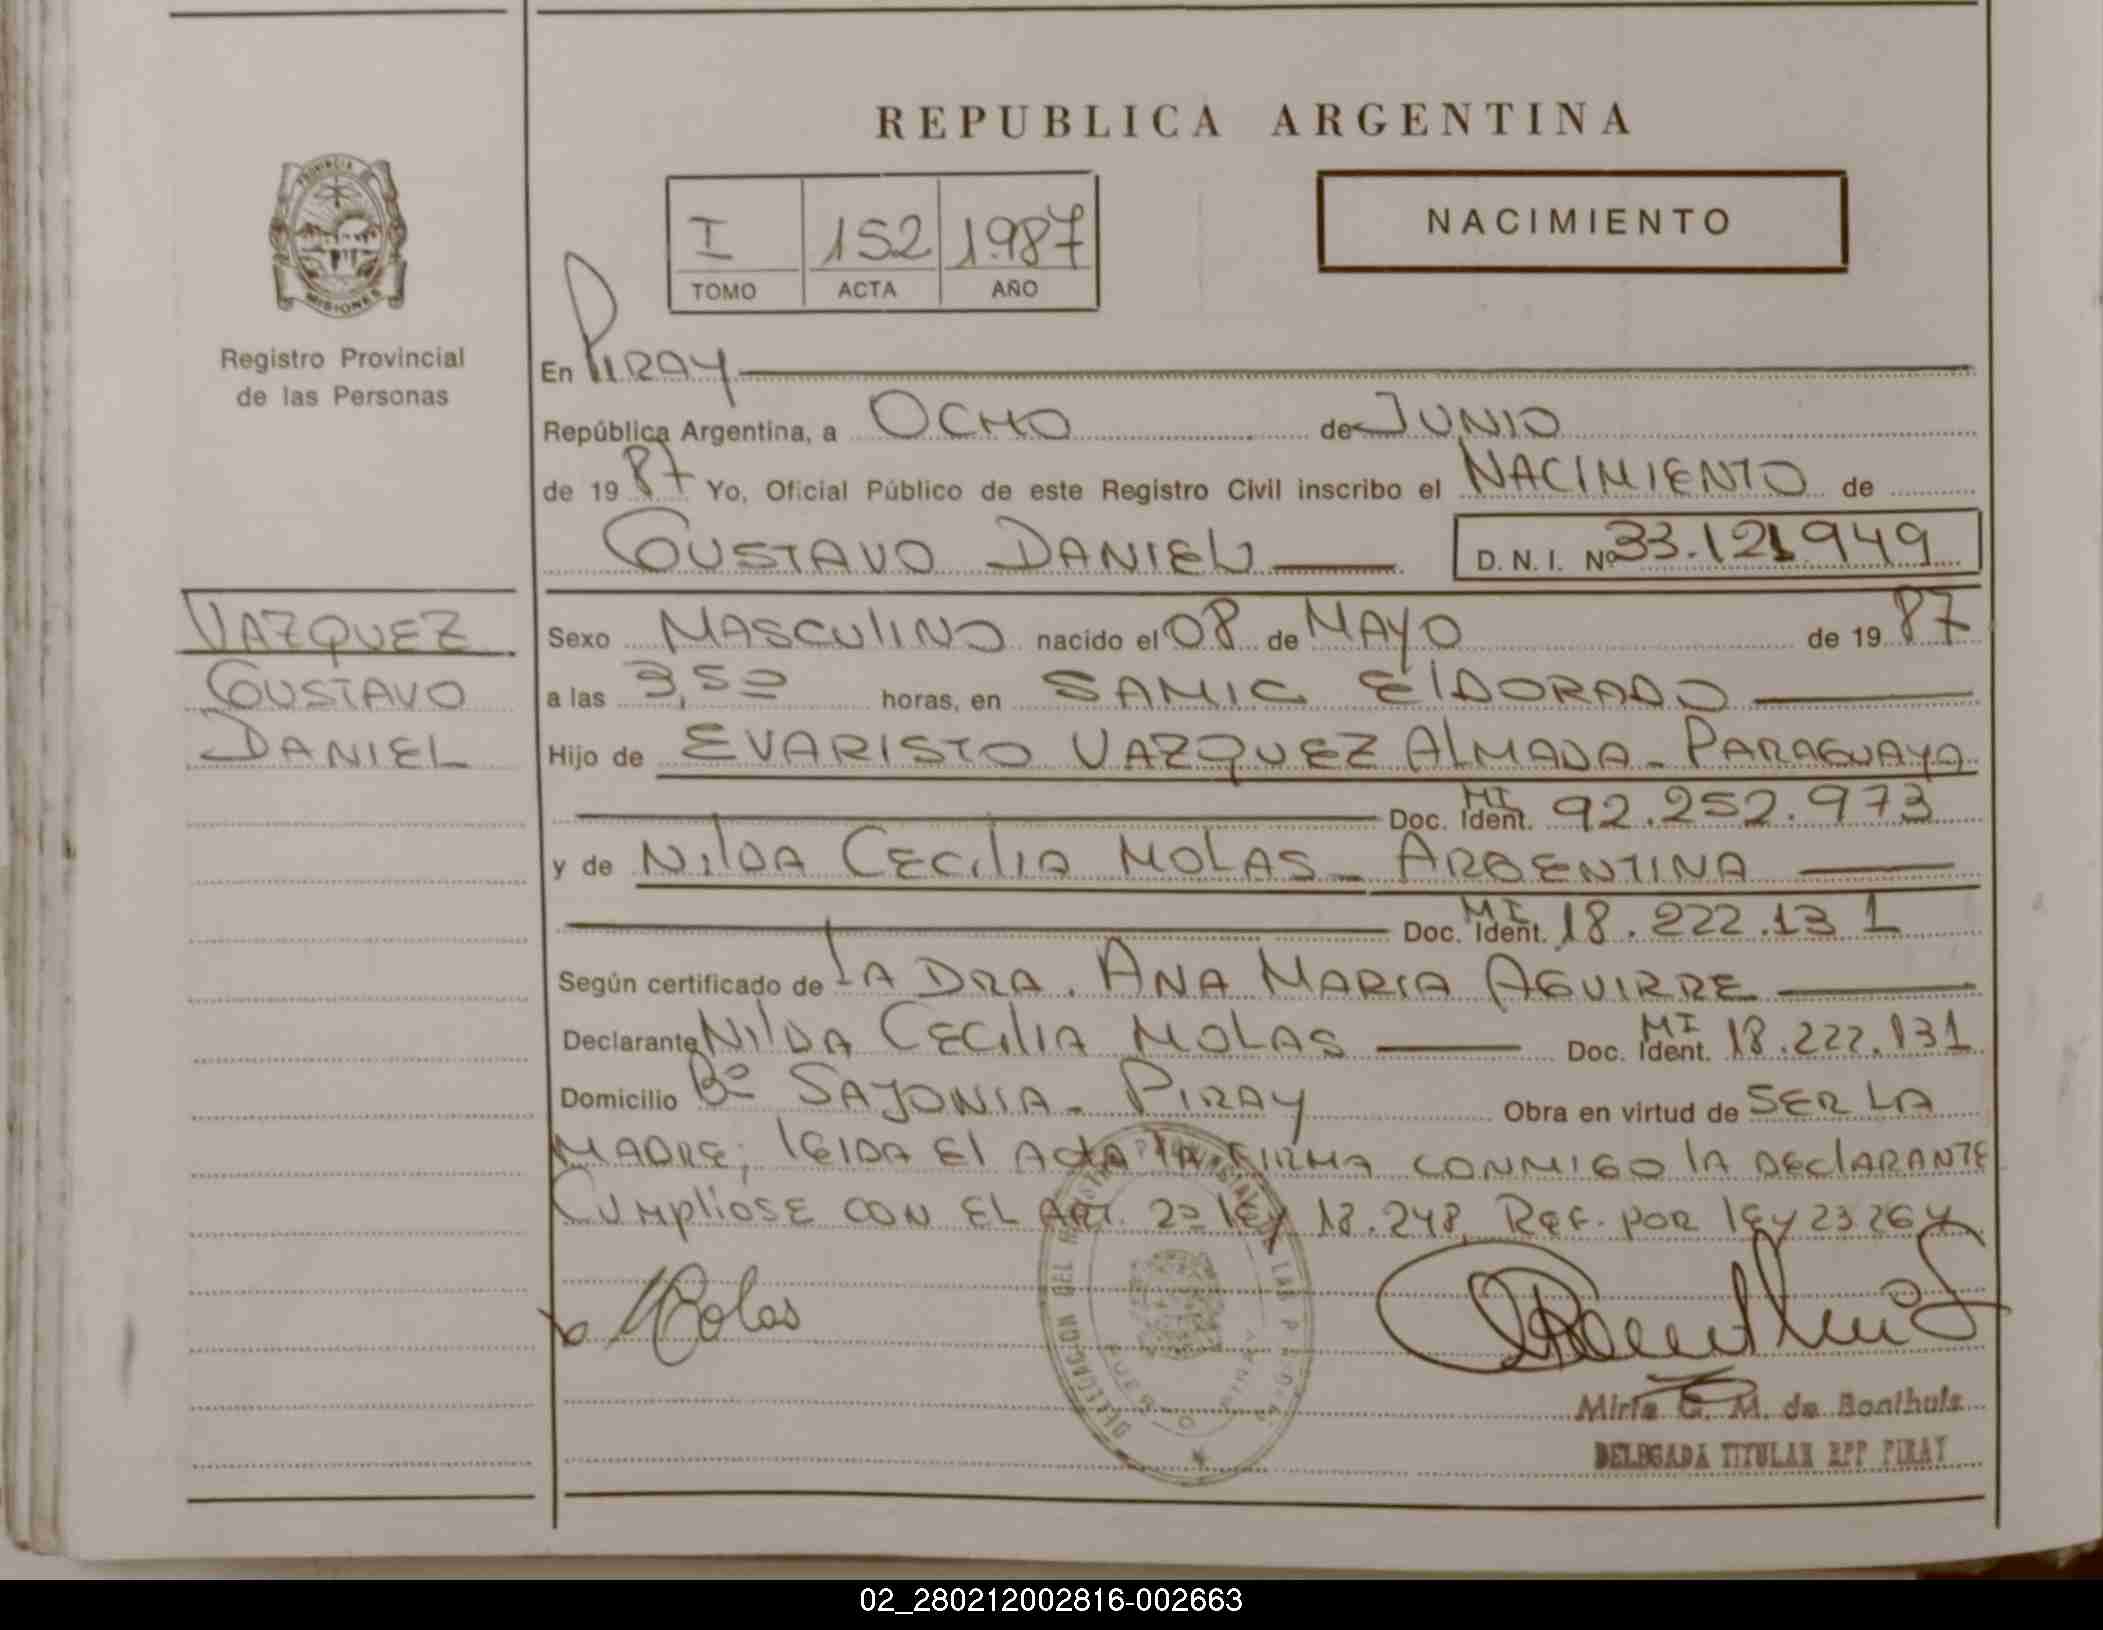 REPUBLICA ARGENTINA
PROVINCIA
MISIONES
Registro Provincial
de las Personas
I 152 1987
TOMO ACTA AÑO
NACIMIENTO
En PIRAY
República Argentina, a OCHO de JUNIO
de 19 87 Yo, Oficial Público de este Registro Civil inscribo el NACIMIENTO de
GUSTAVO DANIEL D. N. I. Nº 33.121.949
VAZQUEZ
GUSTAVO
DANIEL
Sexo MASCULINO nacido el 08 de MAYO de 19 87
a las 3,50 horas, en SAMIC ElDORADO
Hijo de EVARISTO VAZQUEZ AlMADA - PARAGUAYA
Doc. Ident. MI 92.252.973
y de NIlDA CECIlIA MOLAS - ARGENTINA
Doc. Ident. MI 18.222.131
Según certificado de lA DRA. ANA MARIA AGUIRRE
Declarante NIlDA CECIlIA MOLAS Doc. Ident. MI 18.222.131
Domicilio Bº SAJONIA - PIRAY Obra en virtud de SER LA
MADRE; lEIDA El ActA lA FIRMA CONMIGO lA DEClARANTE
CUMplIOSE CON EL ART. 2º lEy 18.248, REF. POR lEy 23264
Molas
DELEGACION DEL REGISTRO PROVINCIAL DE LAS PERSONAS
Mirta G. M. de Bonthuis
DELEGADA TITULAR RPP PIRAY
02_280212002816-002663